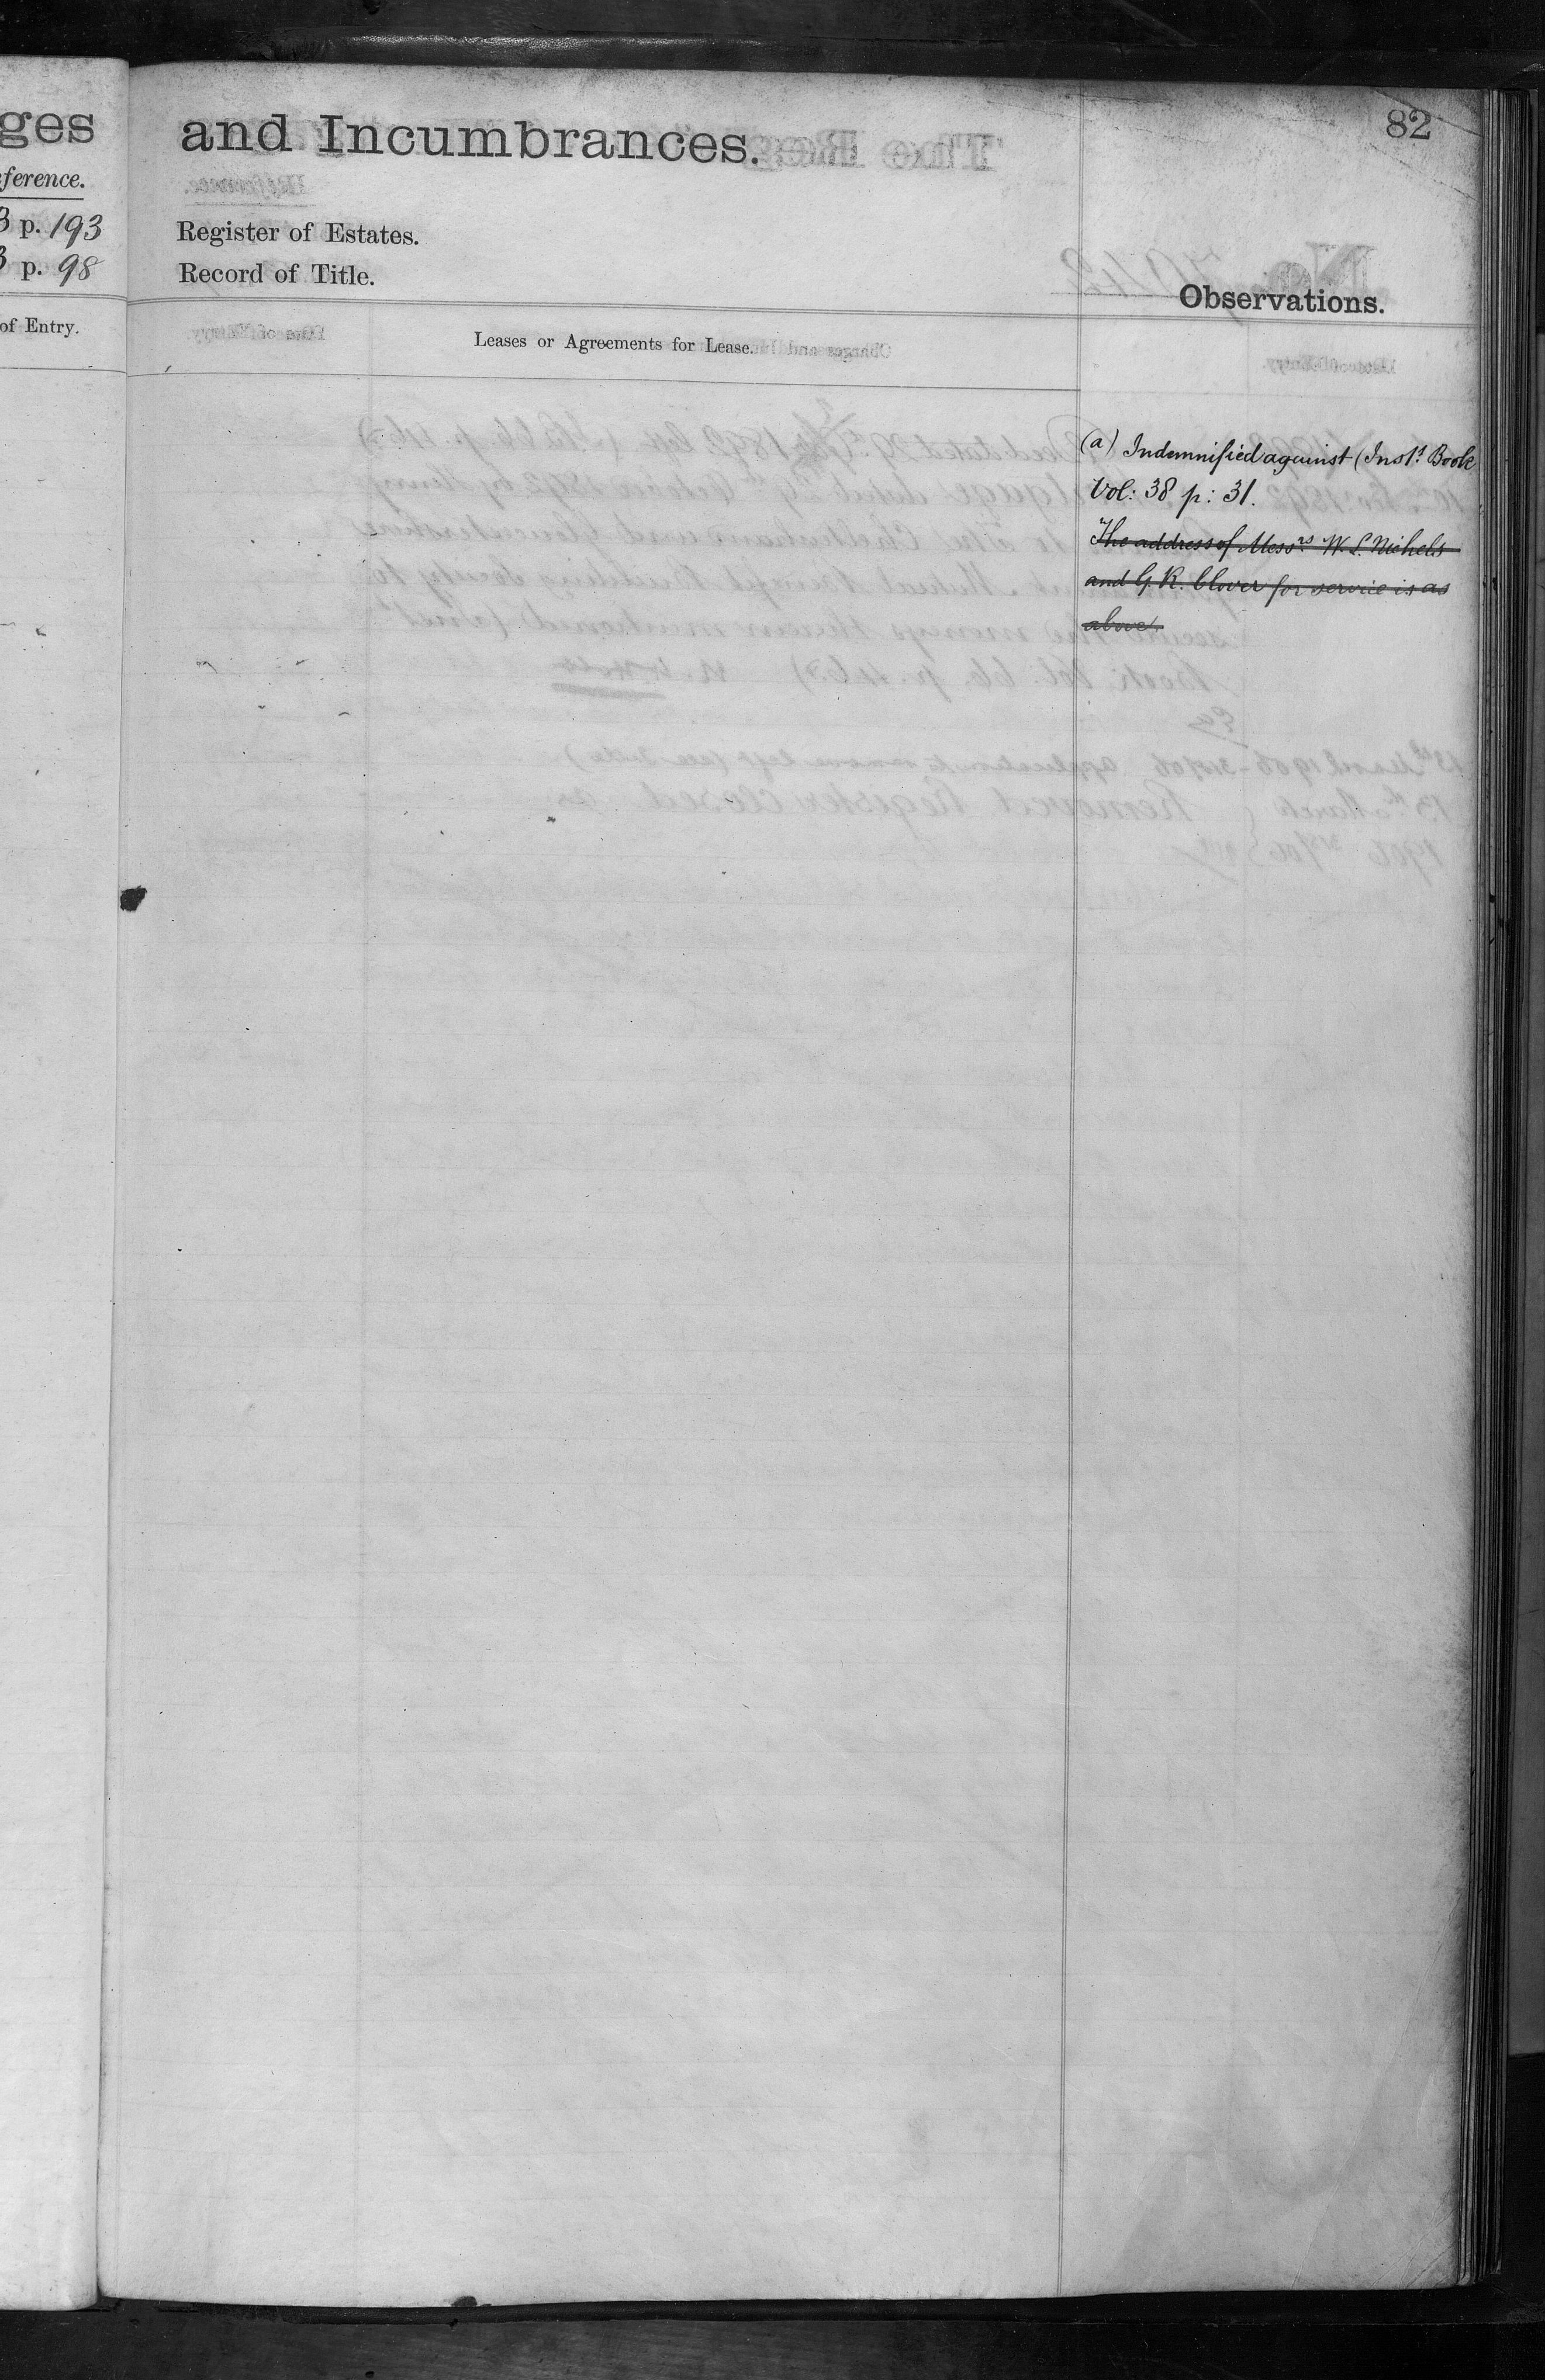 ges
ference.
3 p. 193
3 p. 98
of Entry.
and Incumbrances.
82
Register of Estates.
Record of Title.
Observations.
Leases or Agreements for Lease.
(a) Indemnified against (Inst. Book
Vol: 38 p: 31.
The address of Messrs W. S. Nichels
and G. R. Clover for service is as
above